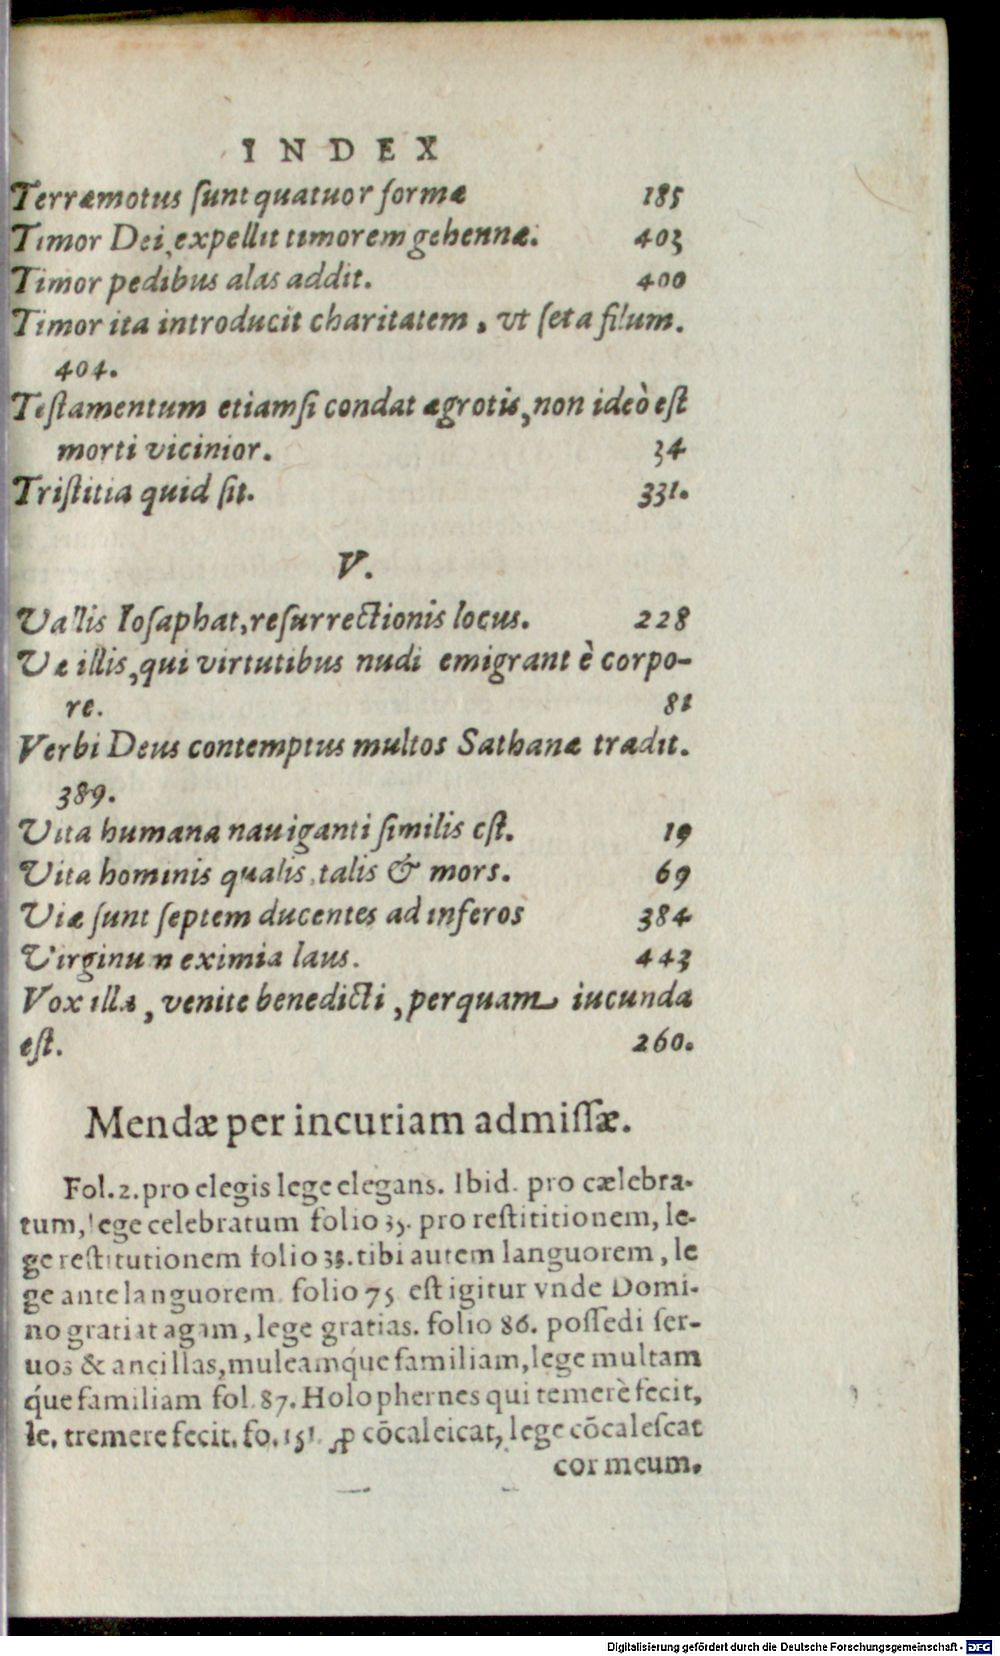 INDEX
Terræmotus ſunt quatuor formæ 185
Timor Dei expellit timorem gehennæ. 403
Timor pedibus alas addit. 400
Timor ita introducit charitatem, vt ſeta filum.
404.
Teſtamentum etiamſi condat ægrotis, non ideò eſt
morti vicinior. 34
Triſtitia quid ſit. 331.
V.
Vallis Ioſaphat, reſurrectionis locus. 228
Væ illis, qui virtutibus nudi emigrant è corpo-
re. 81
Verbi Deus contemptus multos Sathanæ tradit.
389.
Vita humana nauiganti ſimilis eſt. 19
Vita hominis qualis, talis & mors. 69
Viæ ſunt ſeptem ducentes ad inferos 384
Virginum eximia laus. 443
Vox illa, venite benedicti, perquam iucunda
eſt. 260.
Mendæ per incuriam admiſſæ.
Fol. 2. pro elegis lege elegans. Ibid. pro cælebra-
tum, lege celebratum folio 35. pro reſtititionem, le-
ge reſtitutionem folio 38. tibi autem languorem, le
ge ante languorem. folio 75 eſt igitur vnde Domi-
no gratiat agam, lege gratias. folio 86. poſſedi ſer-
uos & ancillas, muleamq́ue familiam, lege multam
q́ue familiam fol. 87. Holophernes qui temerè fecit,
le. tremere fecit. fo. 151. ꝓ cōcaleicat, lege cōcaleſcat
cor meum.
Digitalisierung gefördert durch die Deutsche Forschungsgemeinschaft - DFG